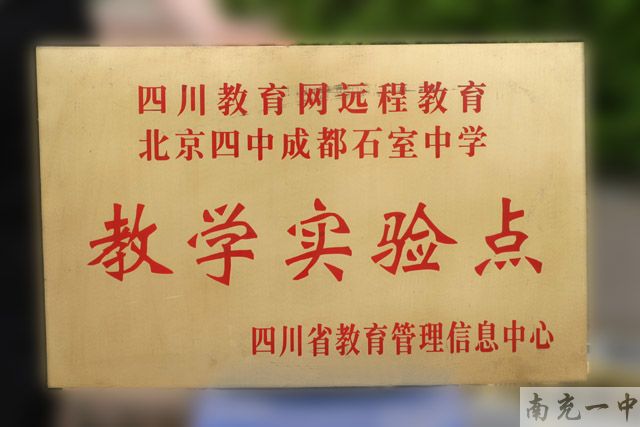 四川教育网远程教育
北京四中成都石室中学
教学实验点
四川省教育管理信息中心
南充一中